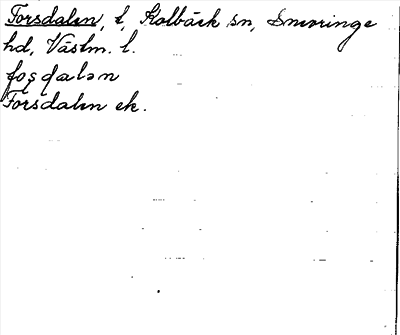 Forsdalen, t, Kolbäck sn, Snevringe
hd, Västm. l.
foṣḍalən
Forsdalen ek.